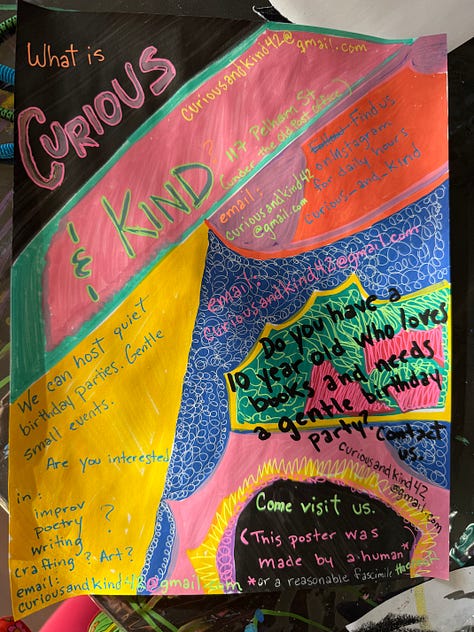 What is
CURIOUS
& KIND?
curiousandkind42@gmail.com
117 Pelham St
(under the old Post office)
email:
curiousandkind42
@gmail.com
find us
on Instagram
for daily hours
Curious_and_Kind
email:
Curiousandkind42@gmail.com
We can host quiet
birthday parties. Gentle
small events.
Are you interested
in:
improv
poetry
writing ?
crafting? Art?
email:
curiousandkind42@gmail.com
Do you have a
10 year old who loves
books and needs
a gentle birthday
party? Contact
us.
Curiousandkind42
@gmail.com
Come visit us.
(This poster was
made by a human*
*or a reasonable fascimile